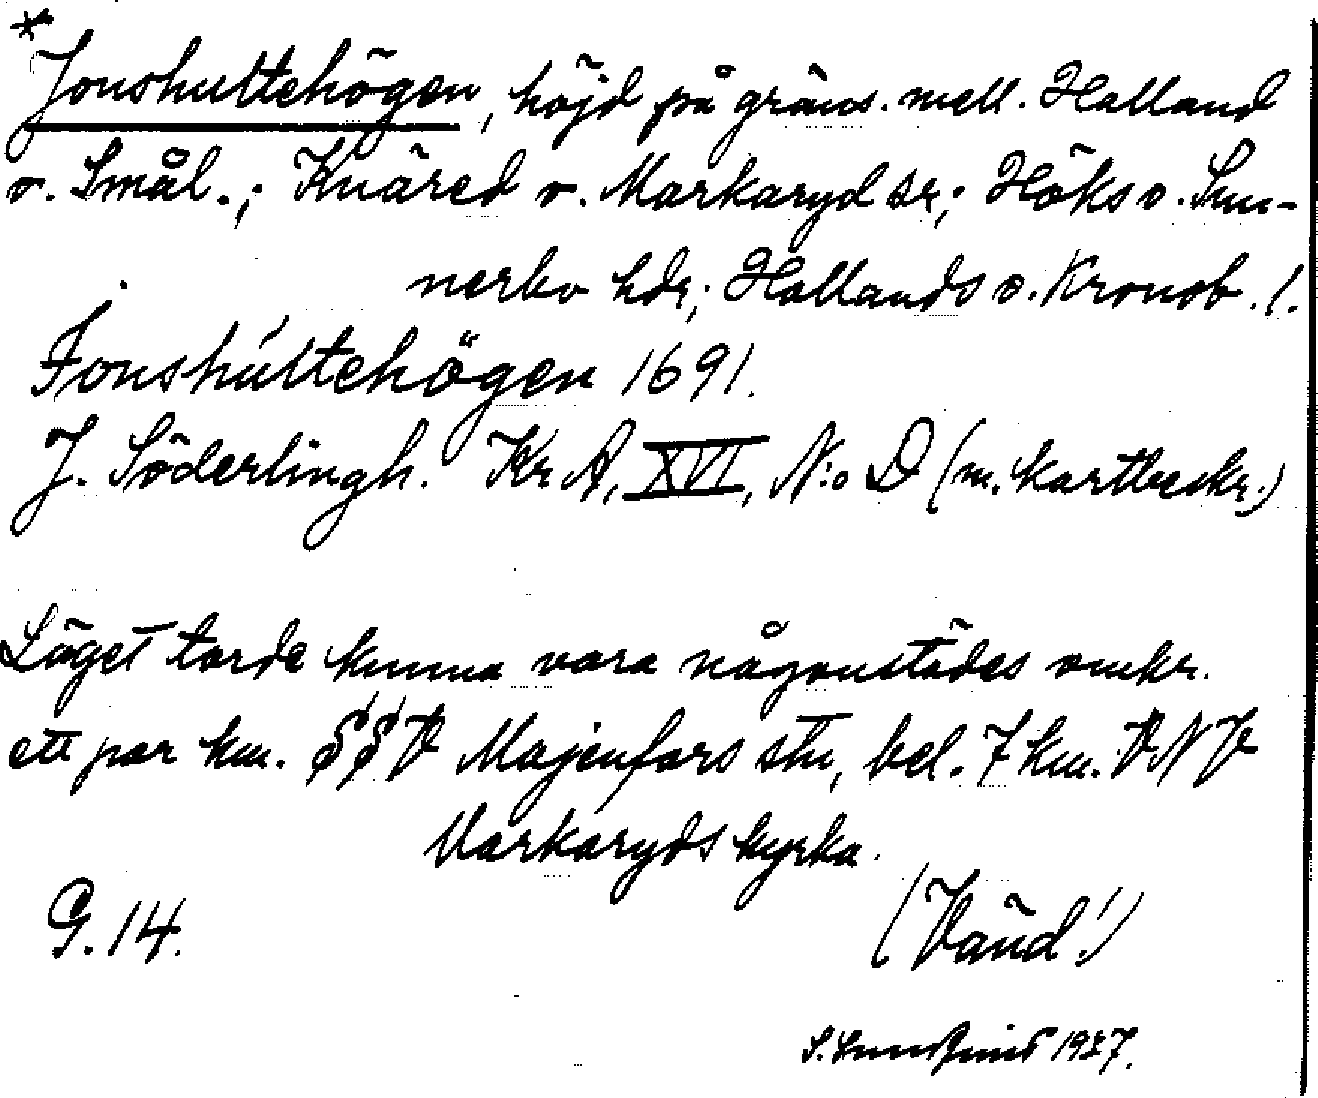 * Jonshultehögen, höjd på gräns. mell. Halland
o. Smål.; Knäred o. Markaryd sr; Höks o. Sun-
nerbo hdr; Hallands o. Kronob. l.
Jonshúltehögen 1691.
J. Söderlingh. Kr A, XVI, N:o D (m. kartbeskr.)
Läget torde kunna vara någonstädes omkr.
ett par km. SSV Majenfors stn, bel. 7 km. VNV
Markaryds kyrka.
G. 14.
(Vänd!)
1927.